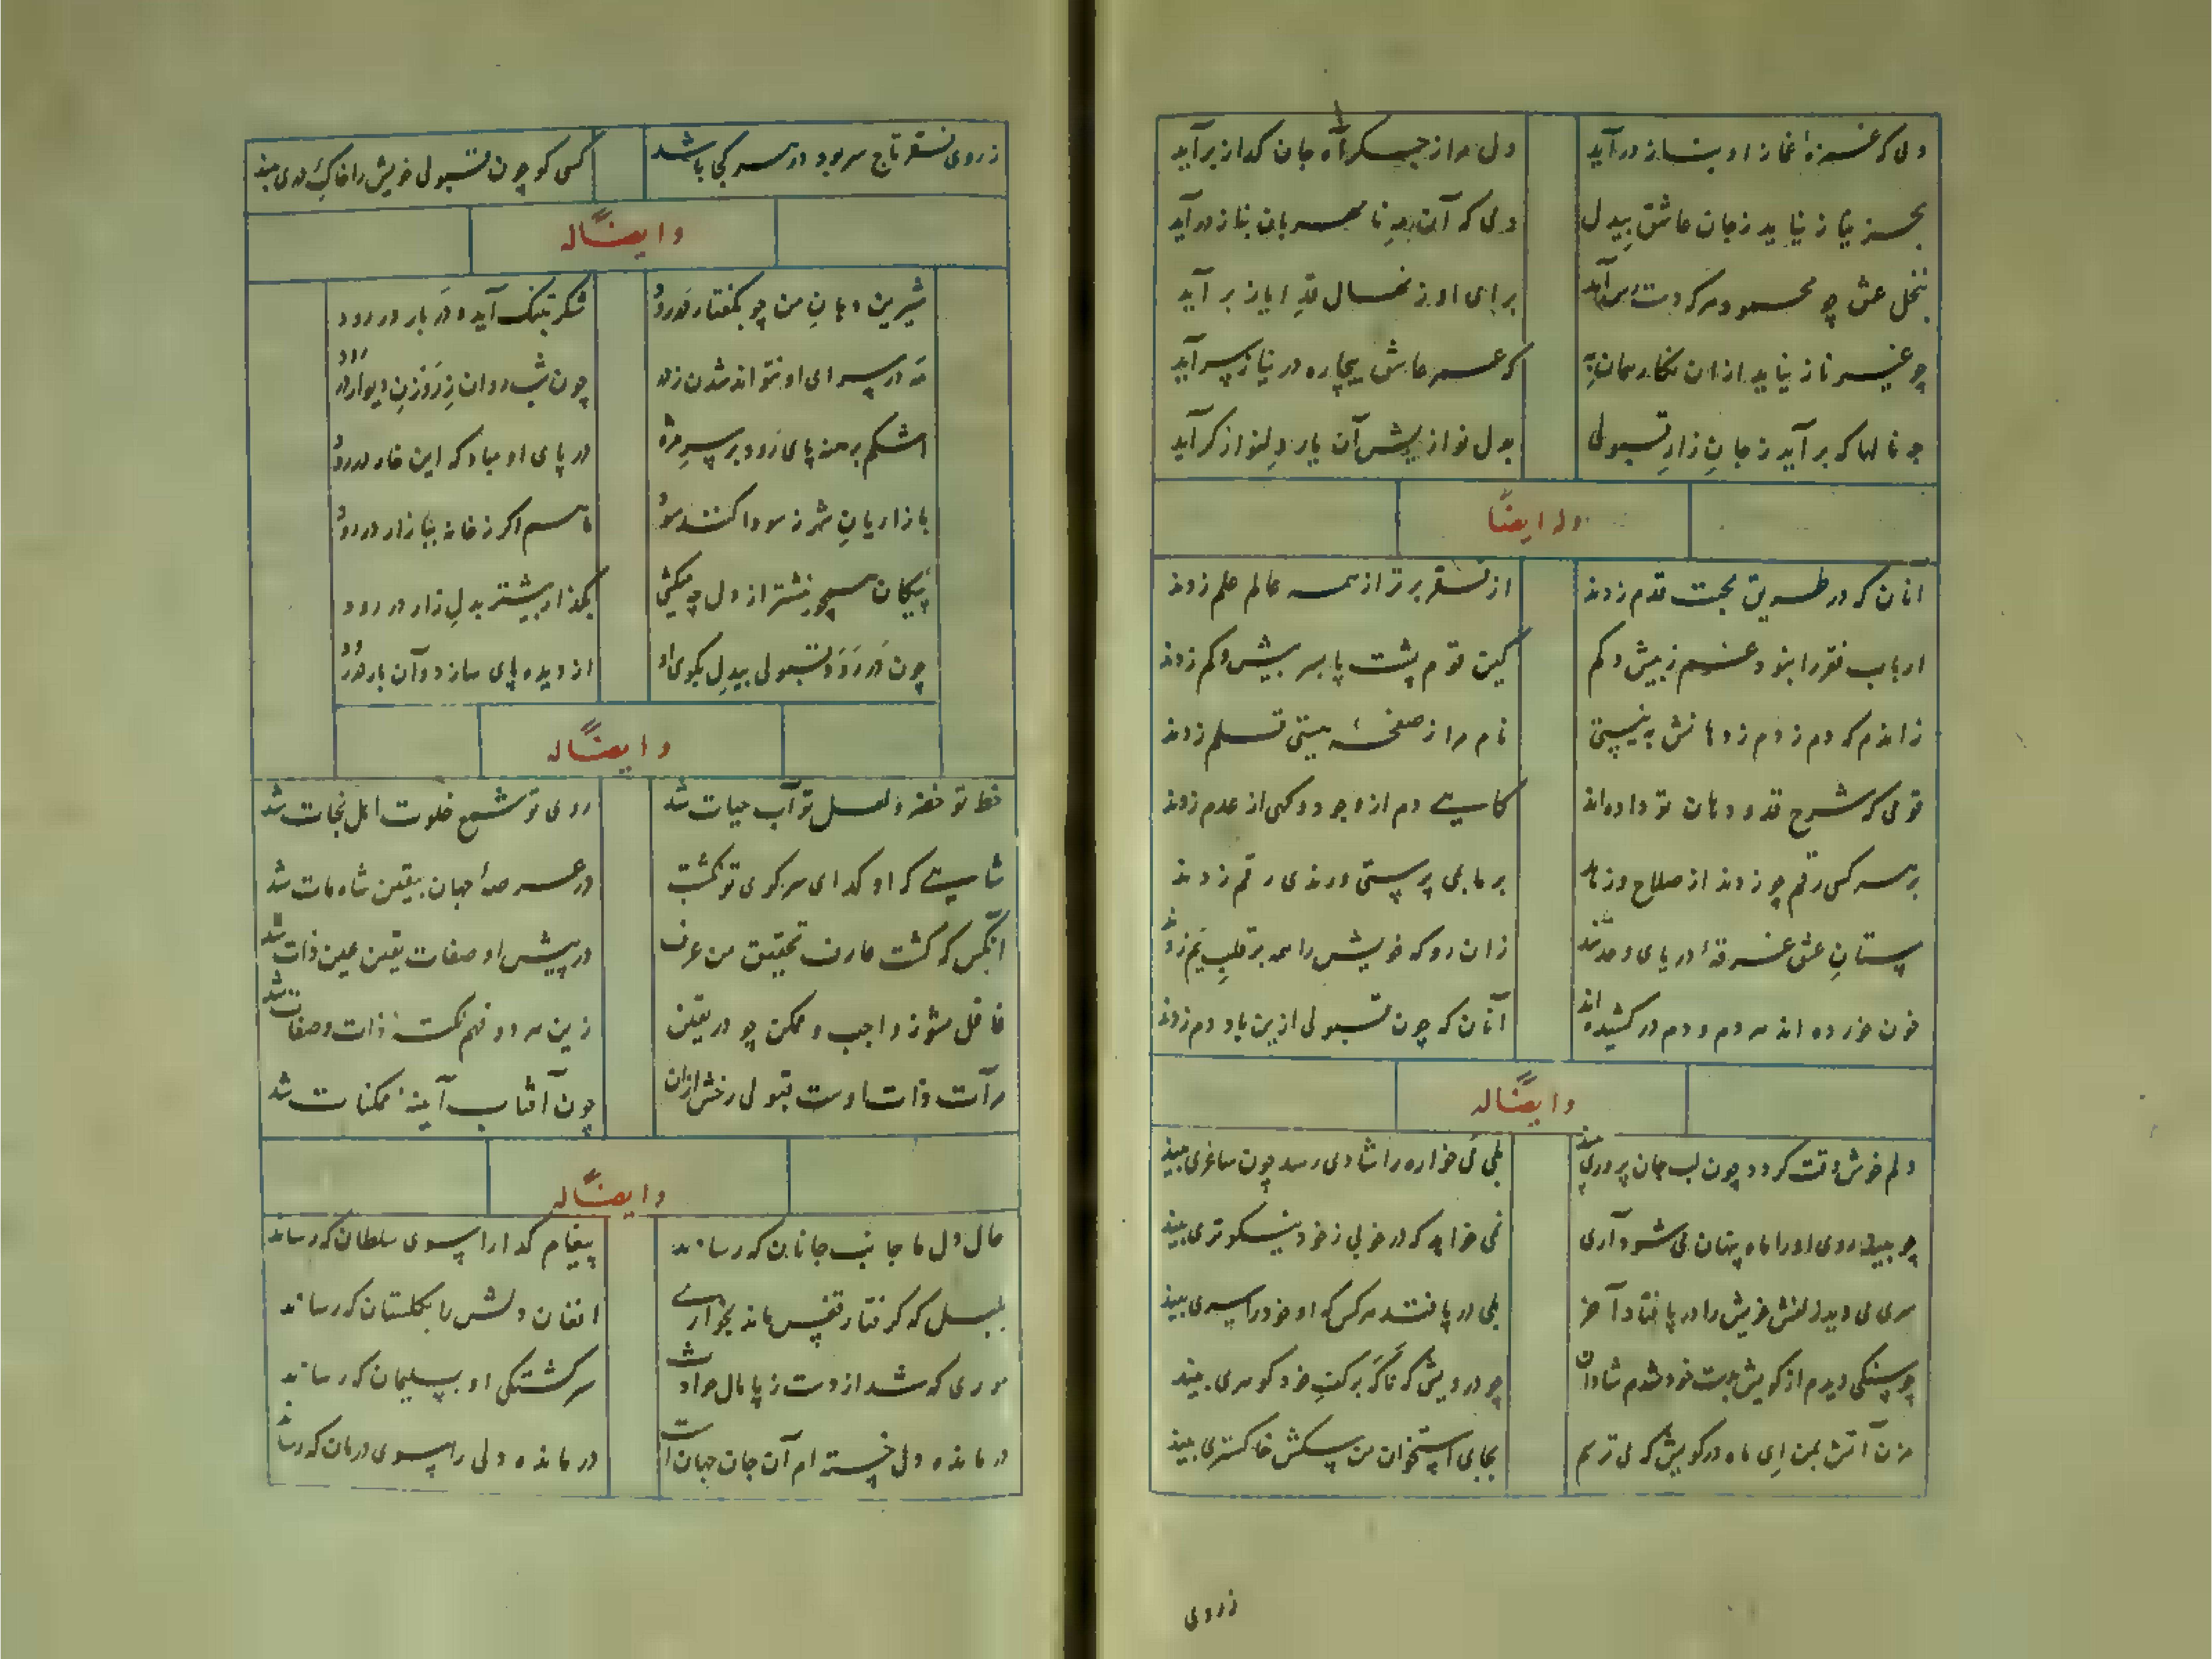 دمی که غمزهٔ غماز او بناز درآید
دل مرا ز جگر آه جان گداز برآید
بجز نیاز نیاید ز جان عاشق بیدل
دمی که آن مه نامهربان بناز درآید
بنخل عشق چو محمود هر که دست برآید
برای او ز نهال قد ایاز برآید
چو غیر ناز نیاید ازان نگار همان به
که عمر عاشق بیچاره در نیاز بسر آید
چو نالها که برآید ز جان زار قبولی
بدل نوازیش آن یار دلنواز گر آید
وله ایضاً
انان که در طریق محبت قدم زدند
از فقر برتر از همه عالم علم زدند
ارباب فقر را نبود غم ز بیش و کم
کین قوم پشت پا بسر بیش و کم زدند
زاندم که دم زدم ز دهانش به نیستی
نام مرا ز صفحهٔ هستی قلم زدند
قومی که شرح قد و دهان تو داده‌اند
گاهی دم از وجود و گهی از عدم زدند
بر هر کسی رقم چو زدند از صلاح و زهد
بر ما می پرستی و رندی رقم زدند
مستان عشق غرقهٔ دریای وحدتند
زان رو که خویش را همه بر قلب یم زدند
خون خورده اند هر دم و دم در کشیده اند
آنان که چون قبولی ازین باده دم زدند
و ایضاً له
دلم خوش وقت گردد چون لب جان پروری بیند
بلی می خواره را شادی رسد چون ساغری بیند
چو بیند روی او را ماه پنهان می شود آری
نمی خواهد که در خوبی ز خود نیکوتری بیند
سری می دید زلفش خویش را در پا فتاد آخر
بلی در پا فتد هر کس که او خود را سری بیند
چو سنگی دیدم از کویش بدست خود شدم شادان
چو درویشی که ناگه بر کف خود گوهری بیند
مزن آتش بمن ای ماه در کویش که می ترسم
بجای استخوان من سگش خاکستری بیند
زروی
زروی فقر تاج سر بود در هر کجا باشد
کسی کو چون قبولی خویش را خاک دری بیند
و ایضاً له
شیرین دهان من چو بگفتار در رود
شکر بتنگ آید و در بار در رود
مه در سرای او نتواند شدن ز در
چون شب روان ز روزن دیوار در رود
اشکم برهنه پای رود بر سر مژه
در پای او مباد که این خار در رود
بازاریان شهر ز سودا کنند سود
ماهم اگر ز خانه ببازار در رود
پیکان همچو نشتر از دل چه میکشی
بگذار بیشتر بدل زار در رود
چون در رود قبولی بیدل بکوی او
از دیده پای سازد و آن بار در رود
و ایضاً له
خط تو خضر و لعل تو آب حیات شد
روی تو شمع خلوت اهل نجات شد
شاهی که او گدای سر کوی تو نگشت
در عرصهٔ جهان بیقین شاه مات شد
آنکس که گشت عارف تحقیق من عرف
در پیش او صفات یقین عین ذات شد
غافل مشو ز واجب و ممکن چو در یقین
زین هر دو فهم نکتهٔ ذات و صفات شد
مرآت ذات اوست قبولی رخش ازان
چون آفتاب آینهٔ ممکنات شد
و ایضاً له
حال دل ما جانب جانان که رساند
پیغام گدا را بسوی سلطان که رساند
بلبل که گرفتار قفس ماند بخواری
افغان دلش را بگلستان که رساند
موری که شد از دست ز پامال حوادث
سرگشتگی او بسلیمان که رساند
درمانده و دل خسته ام آن جان جهان است
درمانده دلی را بسوی درمان که رساند